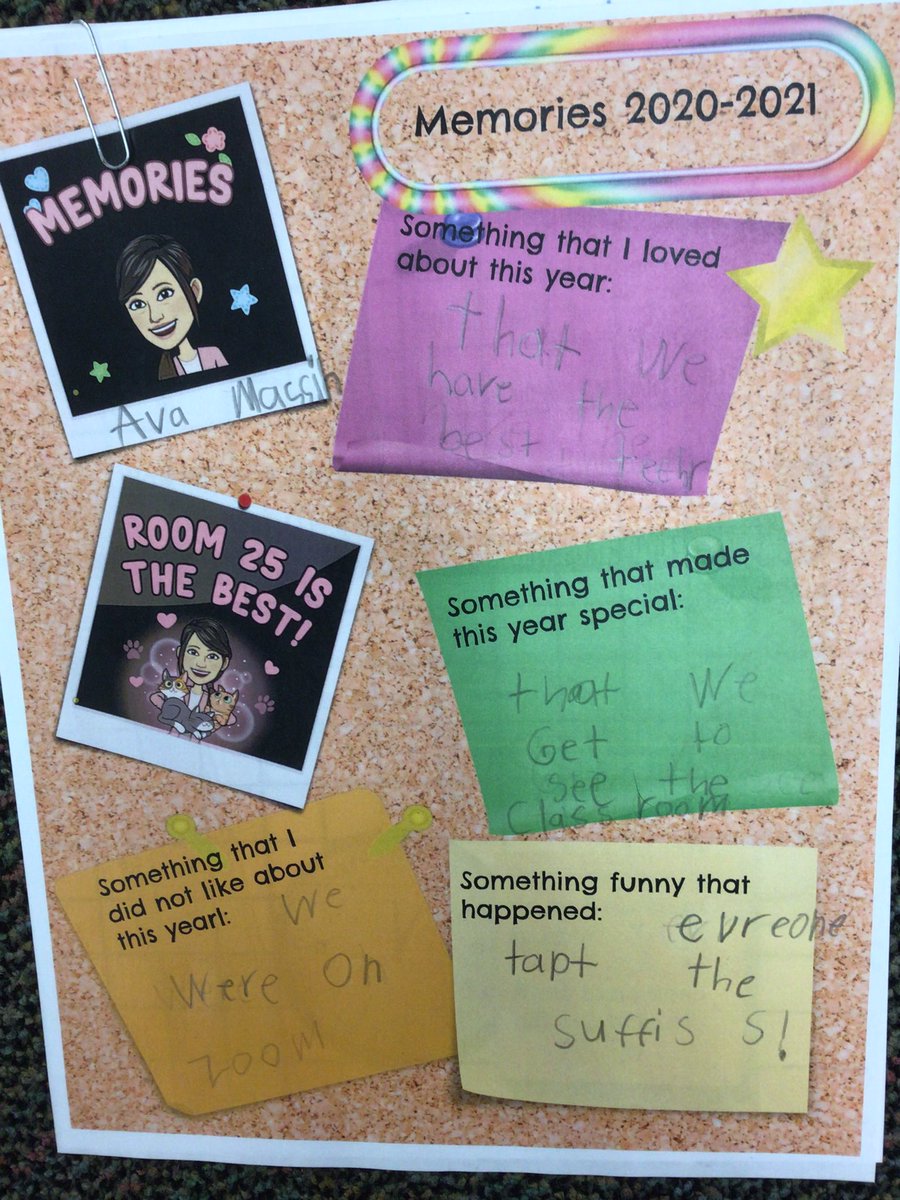 Memories 2020-2021
MEMORIES
Ava Massih
Something that I loved
about this year:
that we
have the
best teehr
ROOM 25 IS
THE BEST!
Something that made
this year special:
that we
Get to
see the
Class room
Something that I
did not like about
this year!:
We
Were on
zoom
Something funny that
happened:
evreone
tapt the
suffis s!